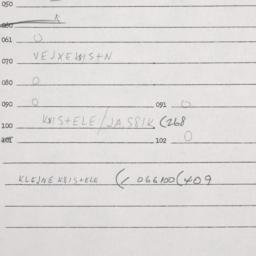 050
060
061 0
VEJXEWISTN
070
080 0
090 0 091 0
100 KWISTELE/JASSIK (268
101 102 0
KLEJNE KWISTELE (/ 066100(409